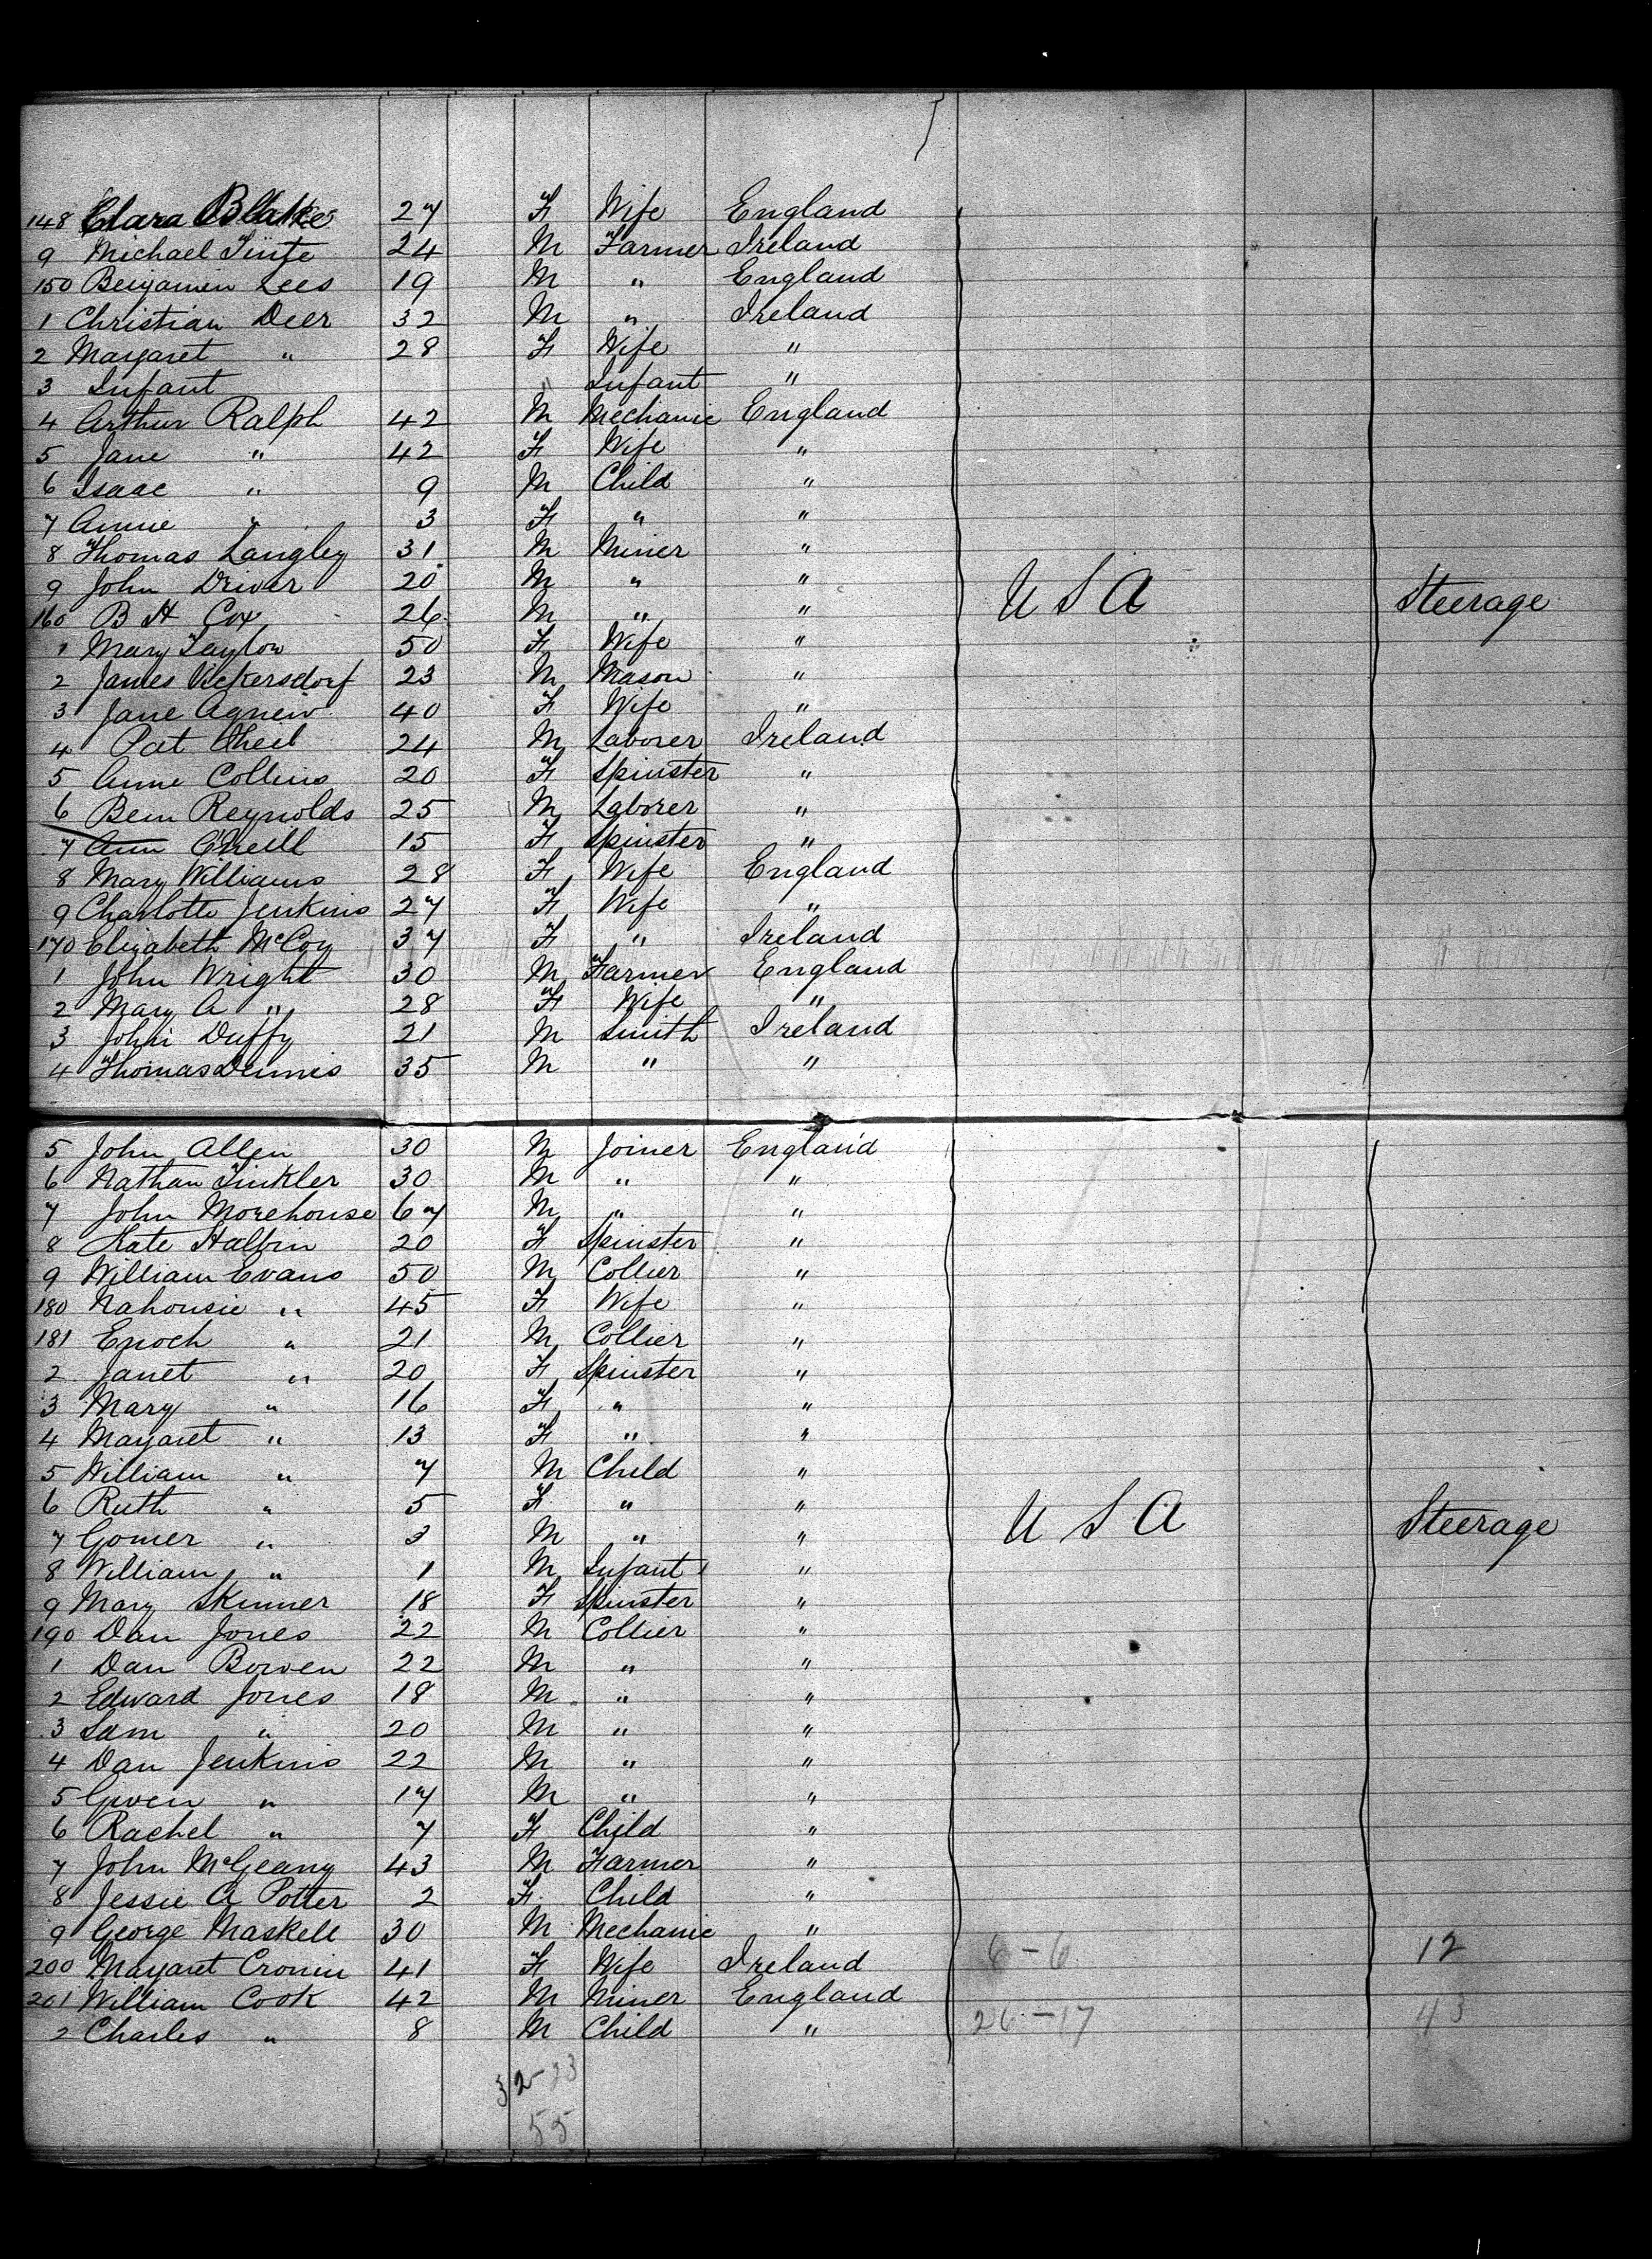 148 Clara Blake 27 F Wife England
9 Michael Tinte 24 M Farmer Ireland
150 Benjamin Lees 19 M " England
1 Christian Deer 32 M " Ireland
2 Margaret " 28 F Wife "
3 Infant " Infant "
4 Arthur Ralph 42 M Mechanic England
5 Jane " 42 F Wife "
6 Isaac " 9 M Child "
7 Annie " 3 F " "
8 Thomas Langley 31 M Miner "
9 John Driver 20 M " "
160 B H Cox 26 M " " U S A Steerage
1 Mary Taylor 50 F Wife "
2 James Vickersdorf 23 M Mason "
3 Jane Agnew 40 F Wife "
4 Pat 24 M Laborer Ireland
5 Anne Collins 20 F Spinster "
6 Benn Reynolds 25 M Laborer "
7 Ann O'Neill 15 F Spinster "
8 Mary Williams 28 F Wife England
9 Charlotte Jenkins 27 F Wife "
170 Elizabeth McCoy 37 F " Ireland
1 John Wright 30 M Farmer England
2 Mary A " 28 F Wife "
3 John Duffy 21 M Smith Ireland
4 Thomas Dennis 35 M " "
5 John Allen 30 M Joiner England
6 Nathan Tinkler 30 M " "
7 John Morehouse 67 M " "
8 Kate Halpin 20 F Spinster "
9 William Evans 50 M Collier "
180 Nahousie " 45 F Wife "
181 Enoch " 21 M Collier "
2 Janet " 20 F Spinster "
3 Mary " 16 F " "
4 Margaret " 13 F " "
5 William " 7 M Child "
6 Ruth " 5 F " "
7 Gomer " 3 M " " U S A Steerage
8 William " 1 M Infant "
9 Mary Skinner 18 F Spinster "
190 Dan Jones 22 M Collier "
1 Dan Bowen 22 M " "
2 Edward Jones 18 M " "
3 Sam " 20 M " "
4 Dan Jenkins 22 M " "
5 Gwen " 17 M " "
6 Rachel " 7 F Child "
7 John McGeany 43 M Farmer "
8 Jessie A Potter 2 F Child "
9 George Maskell 30 M Mechanic "
200 Margaret Cronin 41 F Wife Ireland 6 - 6 12
201 William Cook 42 M Miner England
2 Charles " 8 M Child " 26 - 17 43
32 - 23
55